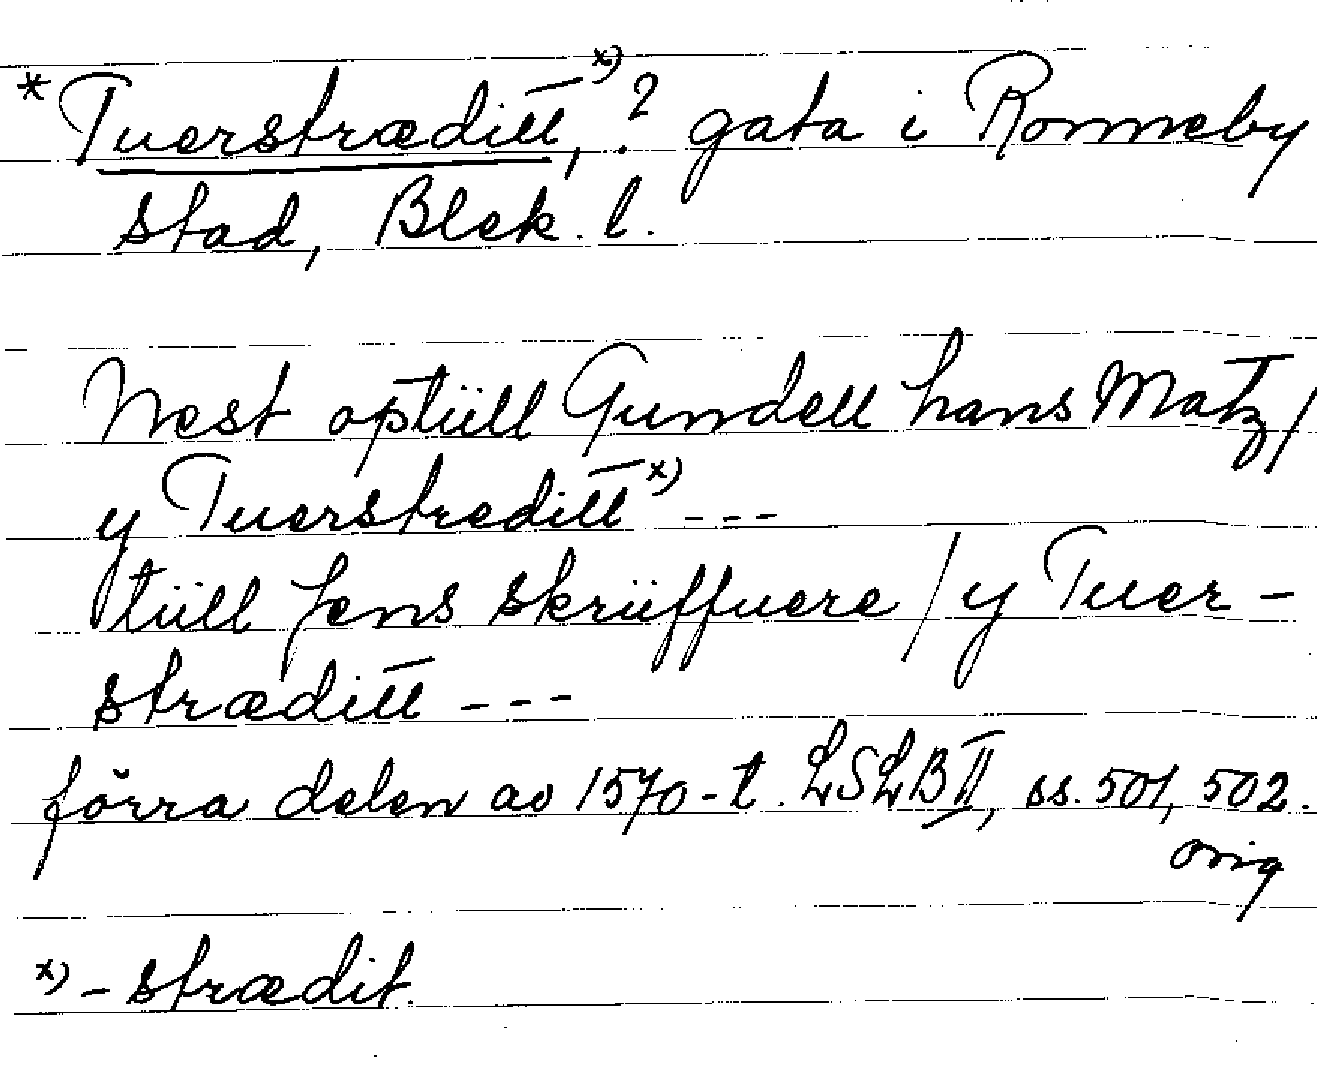 * Tuerstræditt x), ? gata i Ronneby
stad, Blek. l.
Nest optiill Gundell hans Matz/
y Tuerstreditt x) ---
tiill Jens skriiffuere / y Tuer-
stræditt ---
förra delen av 1570-t. LSLB II, ss. 501, 502.
orig
x) - strædit.